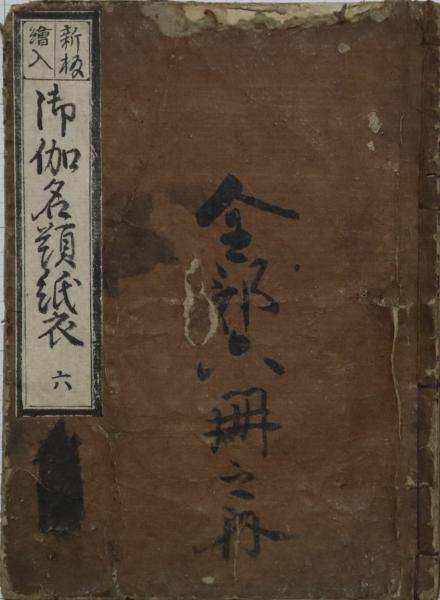 新板
繪入
御伽名題紙衣 六
全部六冊之内